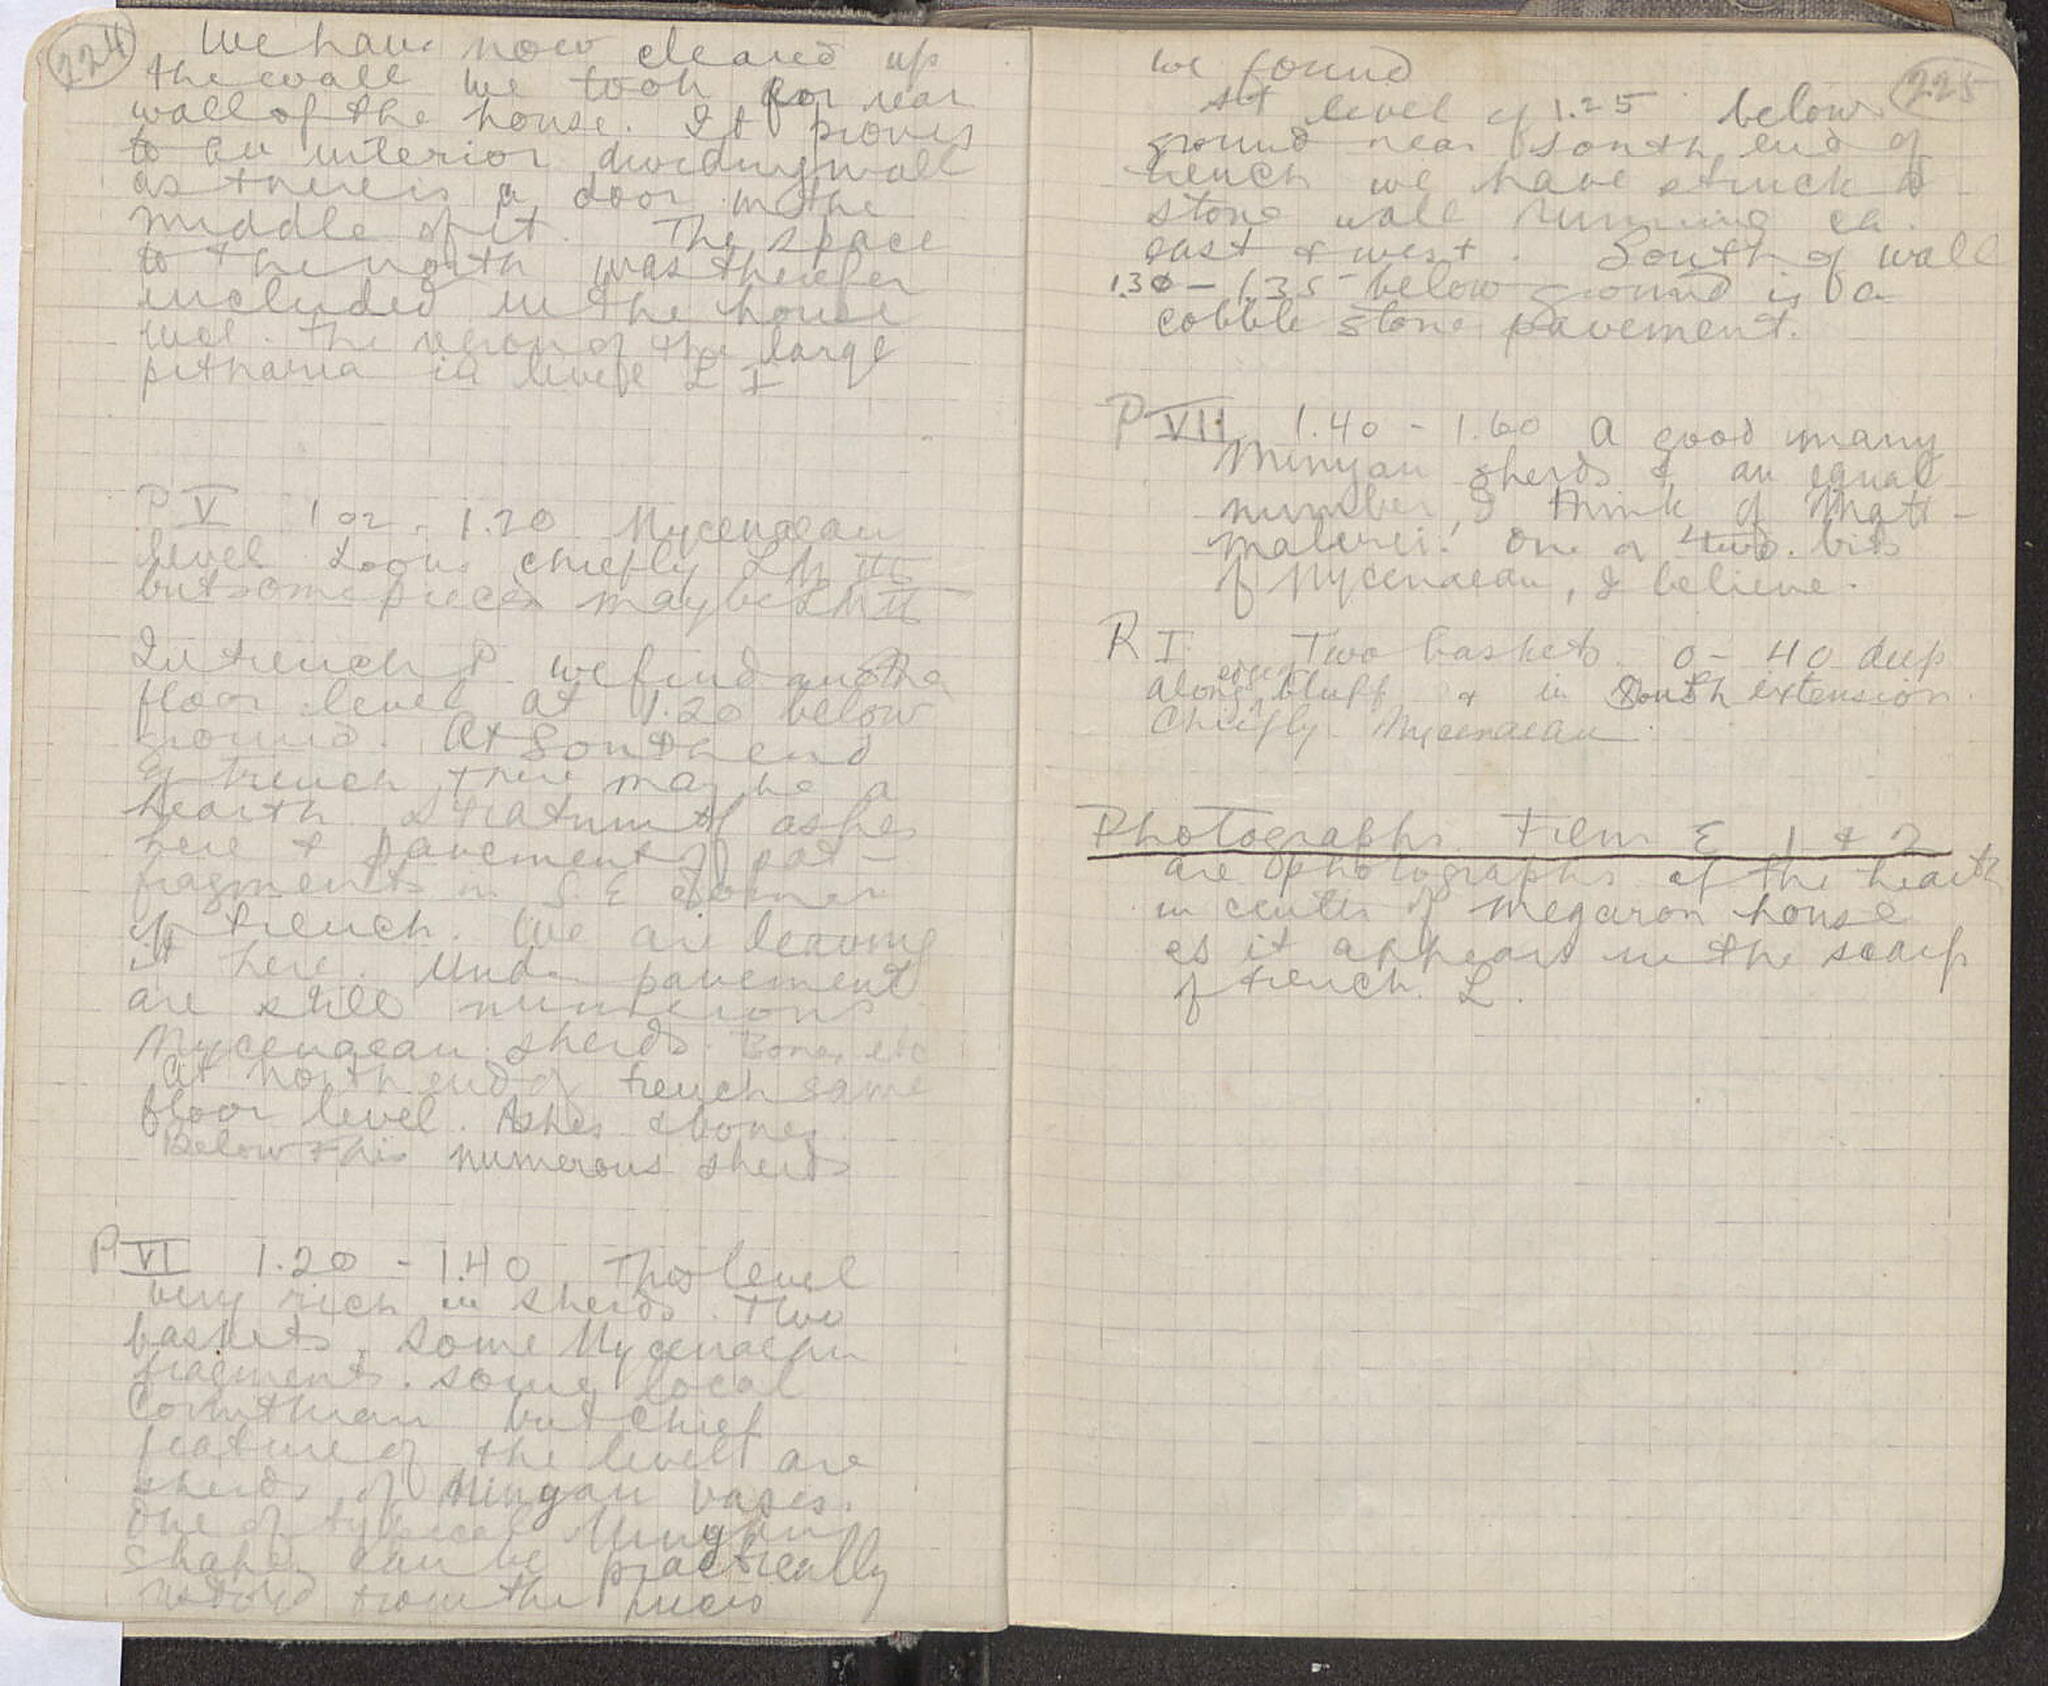 224
We have now cleared up
the wall we took for rear
wall of the house. It proves
to be interior dividing wall
as there is a door in the
middle of it. The space
to the north was therefor
included in the house
The region of the large
pitharia is level L I
P V 1 02 - 1.20 Mycenaean
level Looks chiefly LM III
but some pieces may be LM II
In trench P we find another
floor level at 1.20 below
ground. At South end
of trench there may be a
hearth stratum of ashes
here & pavement of pot-
fragments in S. E corner
of trench. We are leaving
it here. Under pavement
are still numerous
Mycenaean sherds. Bones etc
At north end of trench same
floor level. Ashes & bones.
Below this numerous sherds
P VI 1.20 - 1.40 This level
very rich in sherds. Two
baskets. Some Mycenaean
fragments. some local
Corinthian but chief
feature of the level are
sherds of Minyan vases.
One of typical Minyan
shape can be practically
restored from the pieces
225
we found
At level of 1.25 below
ground near south end of
trench we have struck a
stone wall running ca.
east & west. South of wall
1.30 - 1.35 below ground is a
cobble stone pavement.
P VII 1.40 - 1.60 A good many
Minyan sherds & an equal
number, I think, of Matt-
malerei. One or two bits
of Mycenaean, I believe.
R I. Two baskets. 0 - 40 deep
along edge bluff & in South extension.
Chiefly Mycenaean.
Photographs. Film E 1 & 2
are photographs of the hearth
in center of Megaron house
as it appears in the scarp
of trench L.